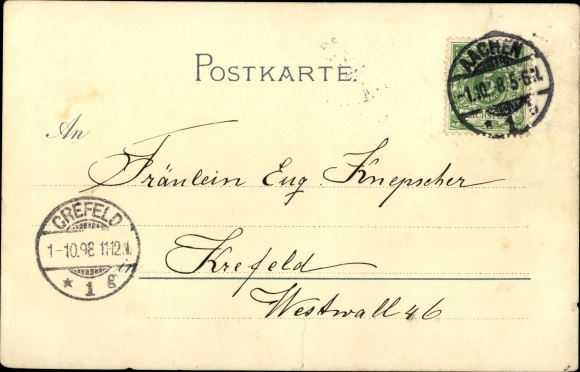 POSTKARTE.
AACHEN
-1.10.98.5-6.N.
* 1 g
An
Fräulein Eug. Knepscher
CREFELD
1-10.98 11-12.N.
* 1 g
in
Krefeld
Westwall 46